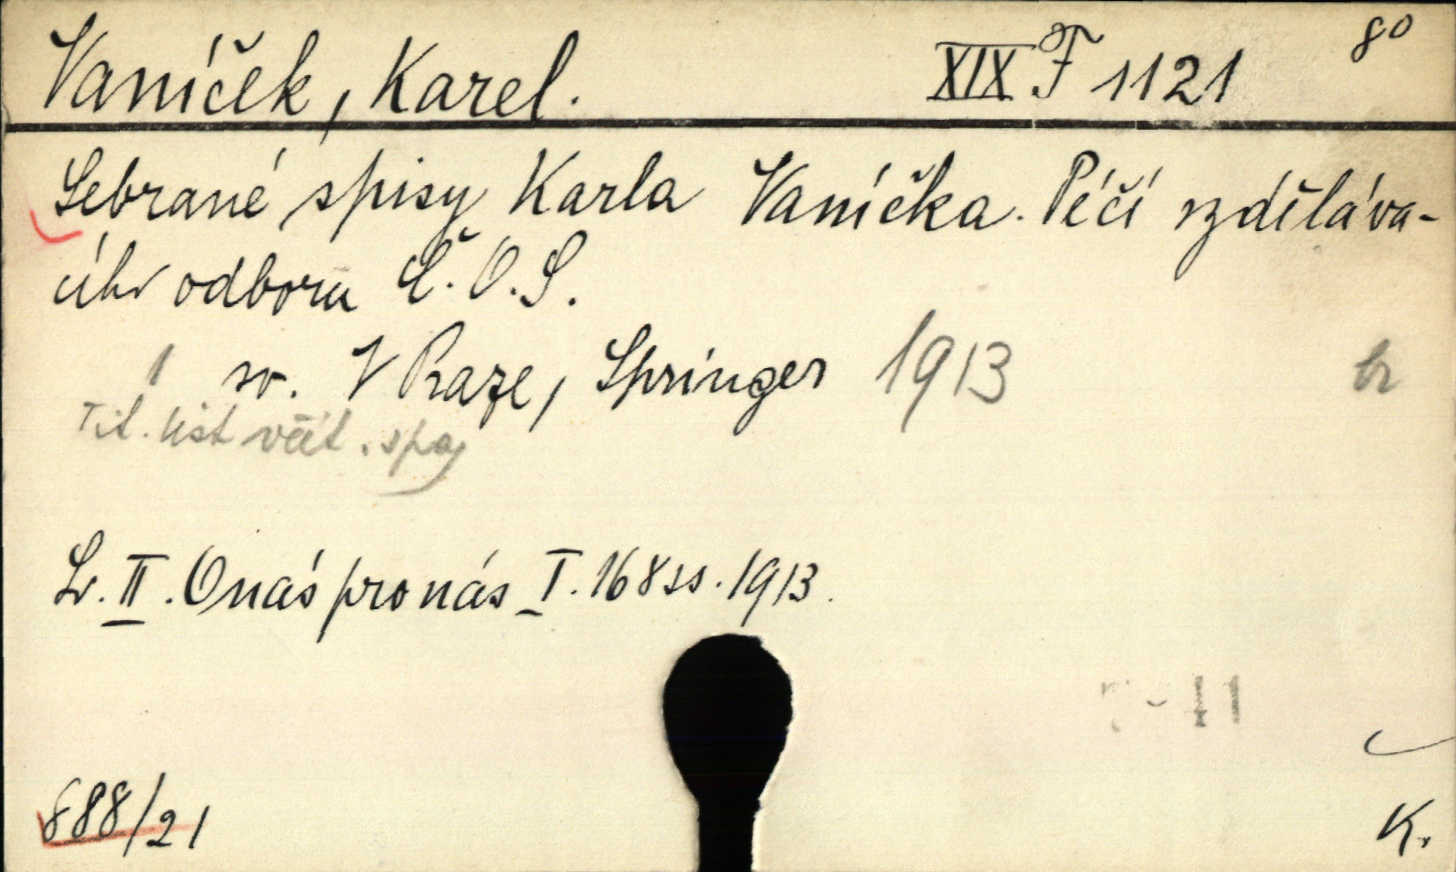 Vaníček, Karel. XIX F 1121 8°
Sebrané spisy Karla Vaníčka. Péčí vzděláva-
cího odboru Č.O.S.
1 sv. V Praze, Springer 1913 br
Tit. list
Sv. II. O nás pro nás I. 168 ss. 1913.
688/21 K.